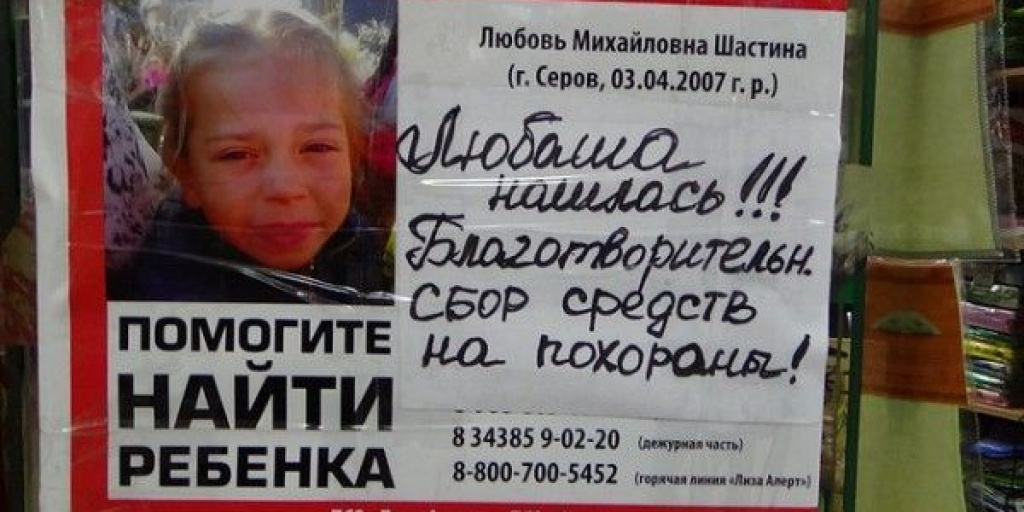 Любовь Михайловна Шастина
(г. Серов, 03.04.2007 г. р.)
Любаша
нашлась!!!
Благотворительн.
сбор средств
на похороны!
ПОМОГИТЕ
НАЙТИ
РЕБЕНКА
8 34385 9-02-20 (дежурная часть)
8-800-700-5452 (горячая линия «Лиза Алерт»)